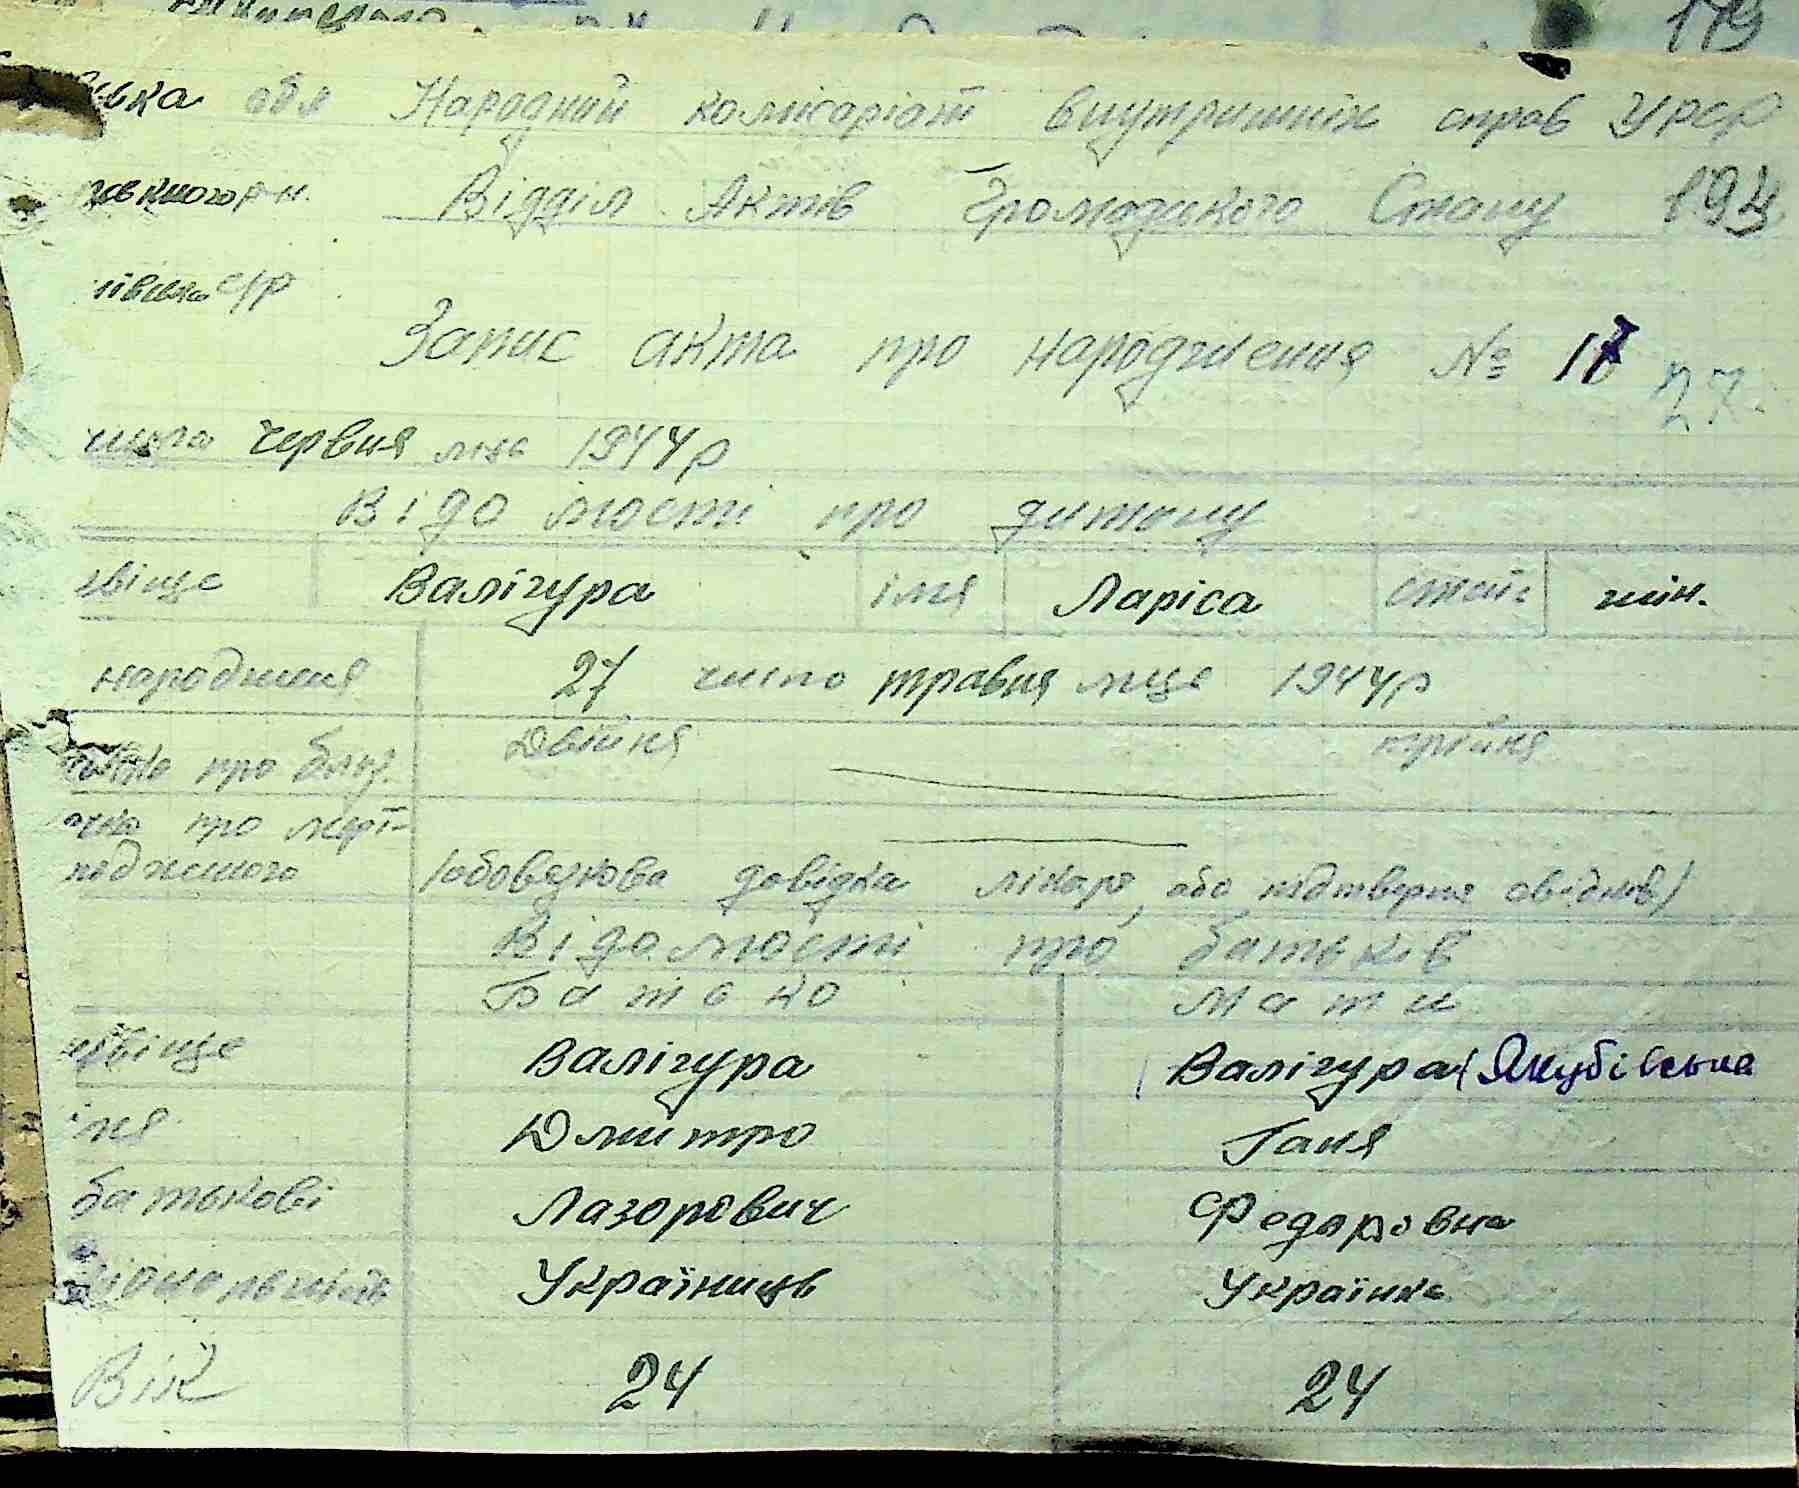 179
ська обл Народний комісаріат внутрішніх справ УРСР
р-н. Відділ Актів Громадського Стану 194
івська с/р
Запис акта про народження № 17 27.
числа червня мця 1944р
Відомості про дитину
звіще Валігура імя Ларіса стать жін.
народження 27 число травня мце 1944р
про близ. Двійня трійня
про мерт-
родженого /обовязкова довідка лікаря, або підтвержя свідків/
Відомості про батьків
Батько Мати
звіще Валігура Валігура (Якубівська
імя Дмитро Ганя
батькові Лазорович Федоровна
ціональність Україниць Українка
Вік 24 24